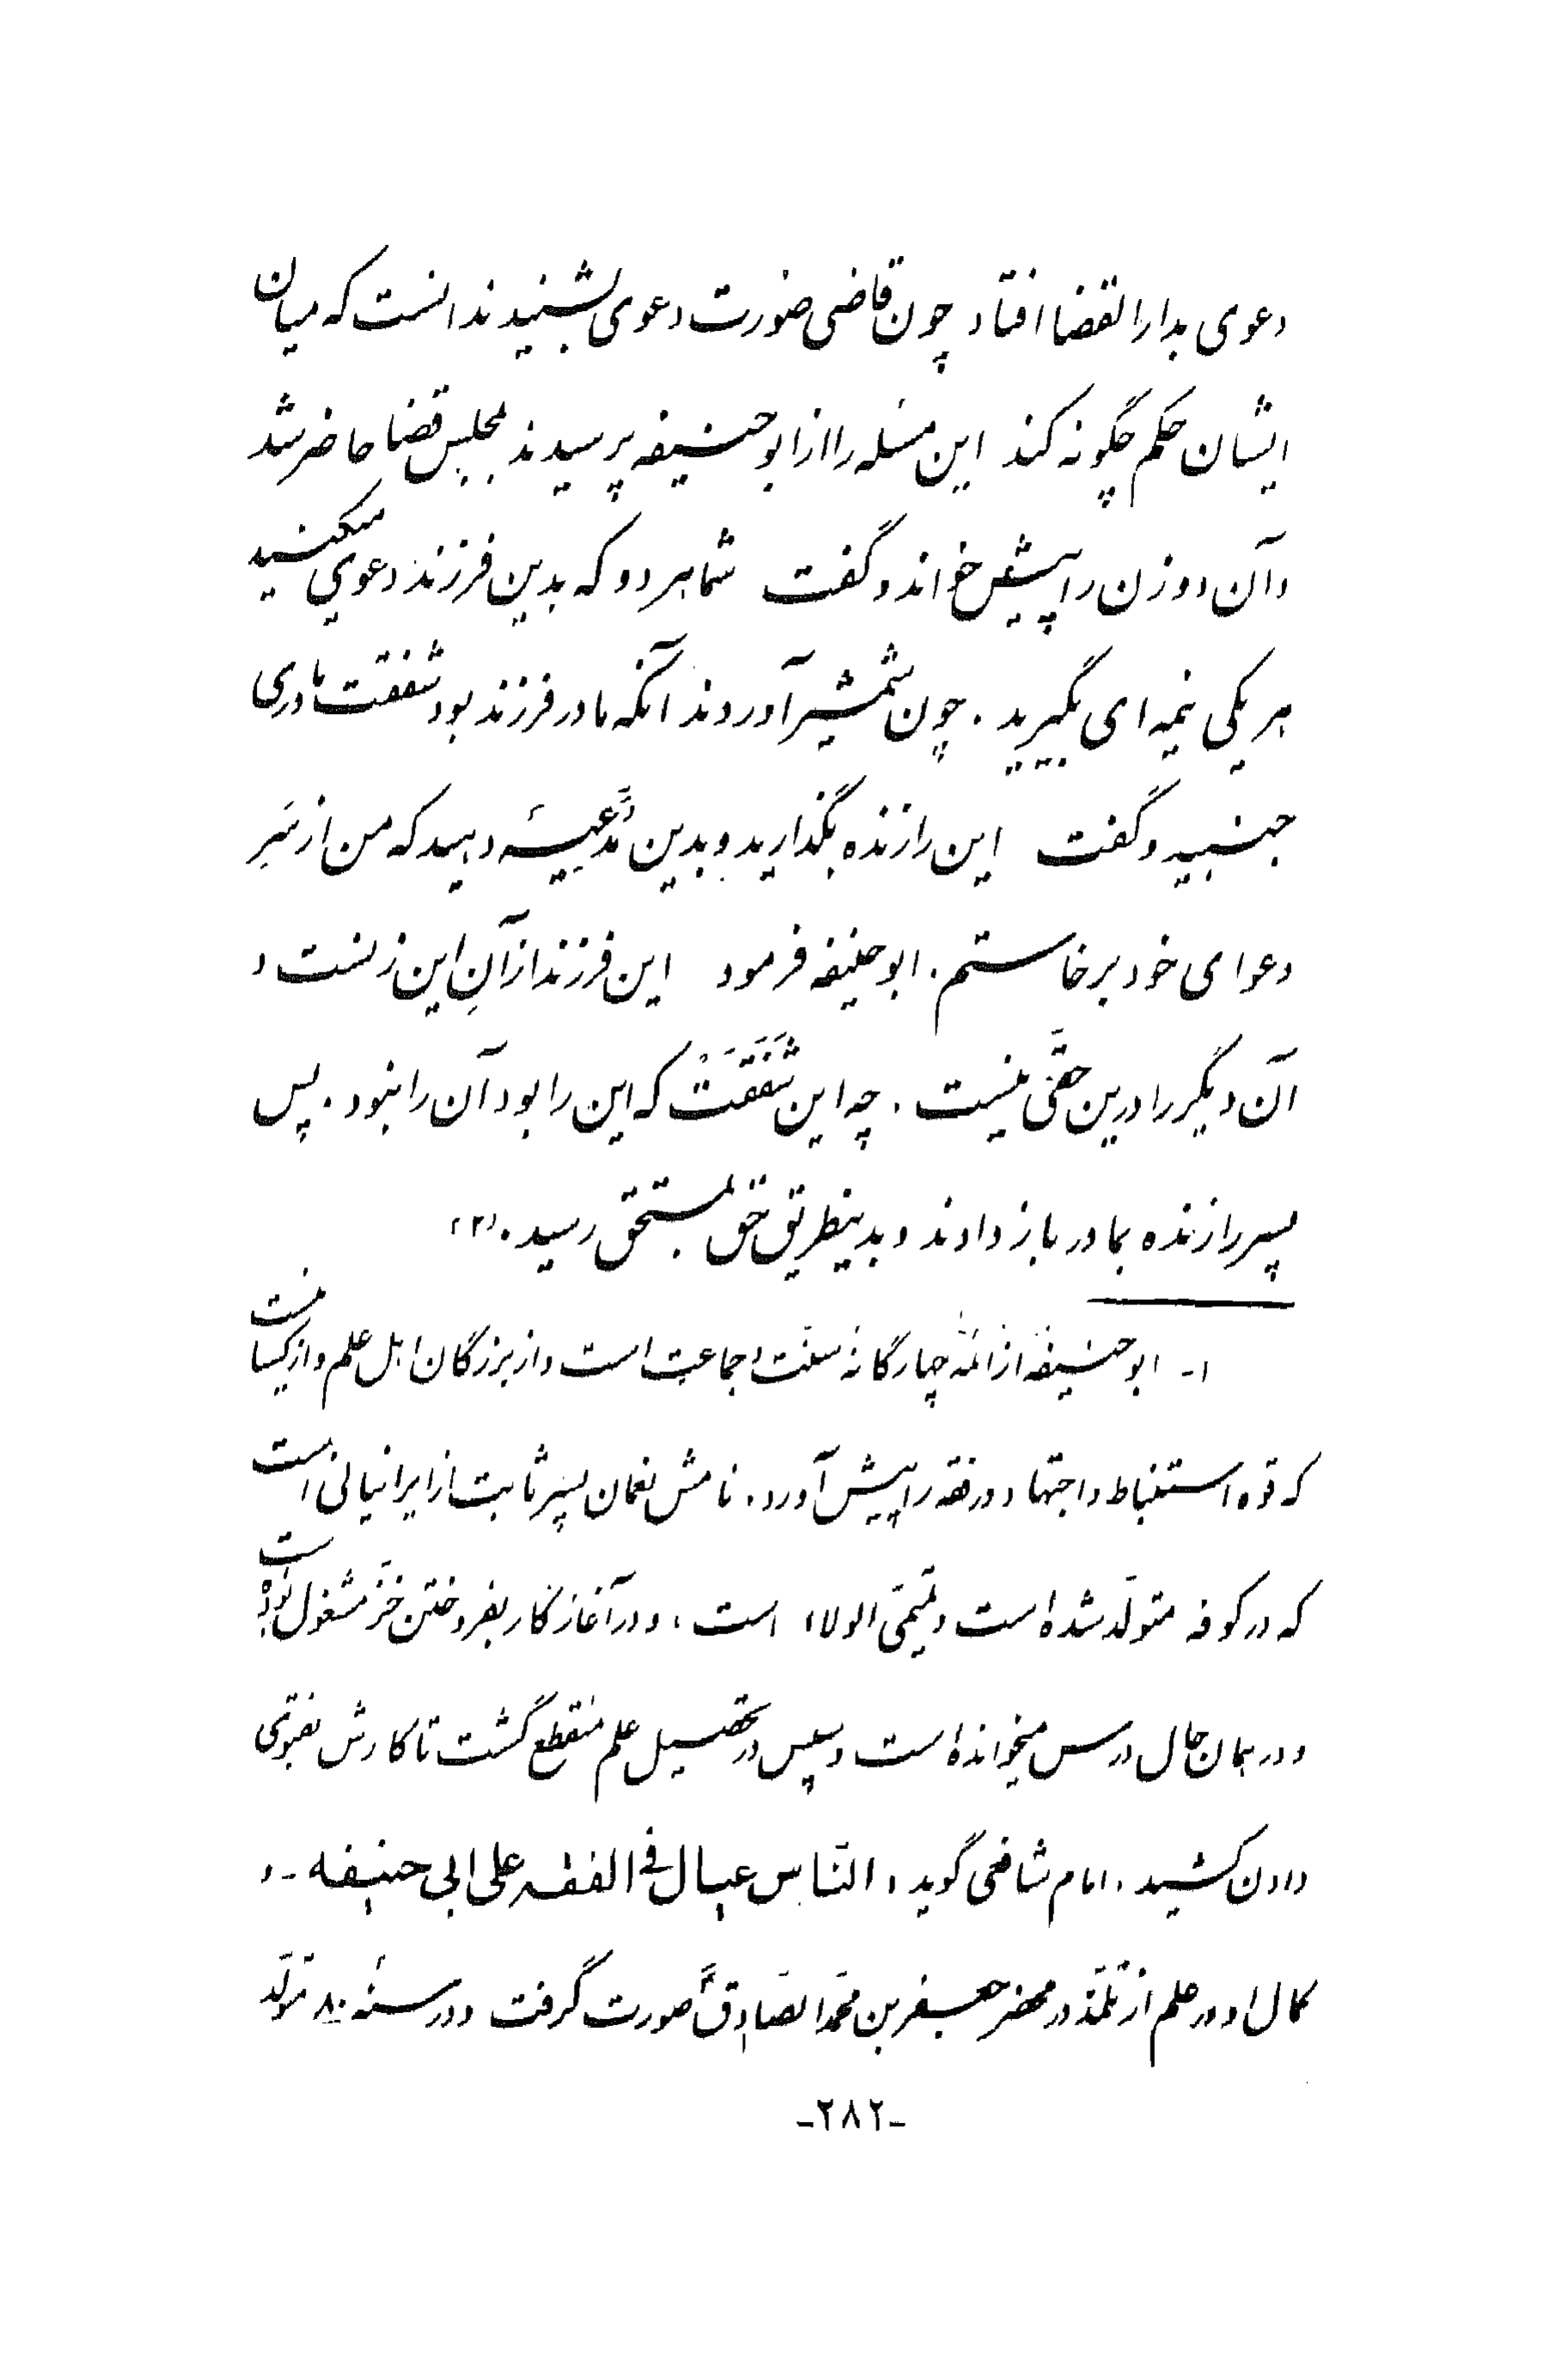 دعوی بدار القضا افتاد چون قاضی صورت دعوی بشنید ندانست که میان
ایشان حکم چگونه کند این مسئله را از ابوحنیفه پرسیدند بمجلس قضا حاضر شد
و آن دو زن را پیش خواند و گفت شما هر دو که بدین فرزند دعوی میکنید
هر یکی نیمه ای بگیرید . چون شمشیر آوردند آنکه مادر فرزند بود شفقت مادری
جنبید و گفت این را زنده بگذارید و بدین مُدَّعِیَه دهید که من از سَرِ
دعوای خود برخاستم . ابوحنیفه فرمود این فرزند از آنِ این زنست و
آن دیگر را درین حقّی نیست . چه این شَفَقَتْ که این را بود آن را نبود . پس
پسر را زنده بمادر باز دادند و بدینطریق حق بمستحق رسید . (۲)
۱- ابوحنیفه از ائمه چهارگانه سنّت و جماعت است و از بزرگان اهل علم و از کسانیست
که قوه استنباط و اجتهاد در فقه را پیش آورد . نامش نعمان پسر ثابت از ایرانیانی است
که در کوفه متولّد شده است و تیمیّ الولاء است ، و در آغاز کار بفروختن خزّ مشغول بوده است
و در همان حال درس میخوانده است و سپس در تحصیل علم منقطع گشت تا کارش بفتوی
دادن کشید . امام شافعی گوید ، النّاس عیال فی الفقه علی ابی حنیفه - و
کمال او در علم از تلمّذ در محضر جعفر بن محمّد الصّادق صورت گرفت و در سنهٔ ۸۰ متولّد
-۲۸۲-